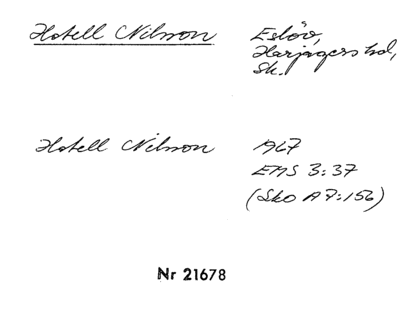 Hotell Nilsson Eslöv,
Harjagers hd,
Sk.
Hotell Nilsson A67
EMS 3:37
(Sko A7:156)
Nr 21678